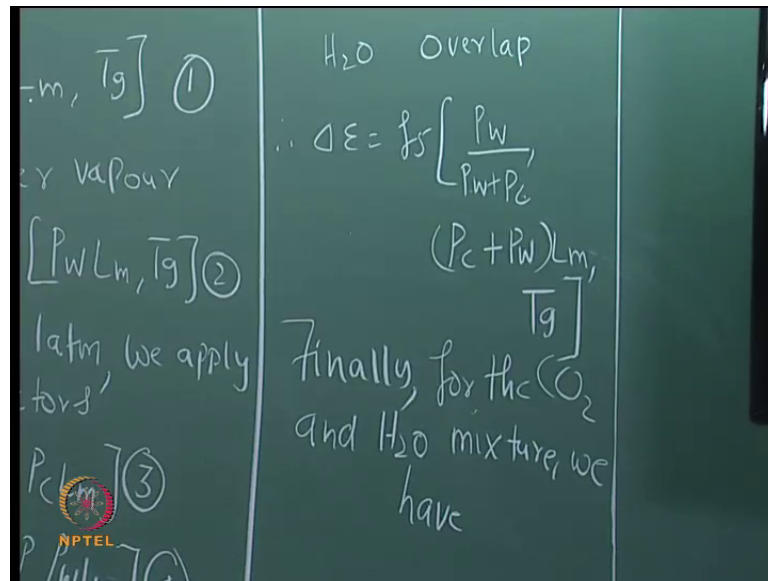 -.m, Tg] ①
er vapour
[PwLm, Tg] ②
1atm, we apply
ctors'
PcLm] ③
H2O Overlap
∴ Δε = f5 [ Pw / Pw+Pc,
(Pc + Pw)Lm,
Tg]
Finally, for the CO2
and H2O mixture, we
have
NPTEL